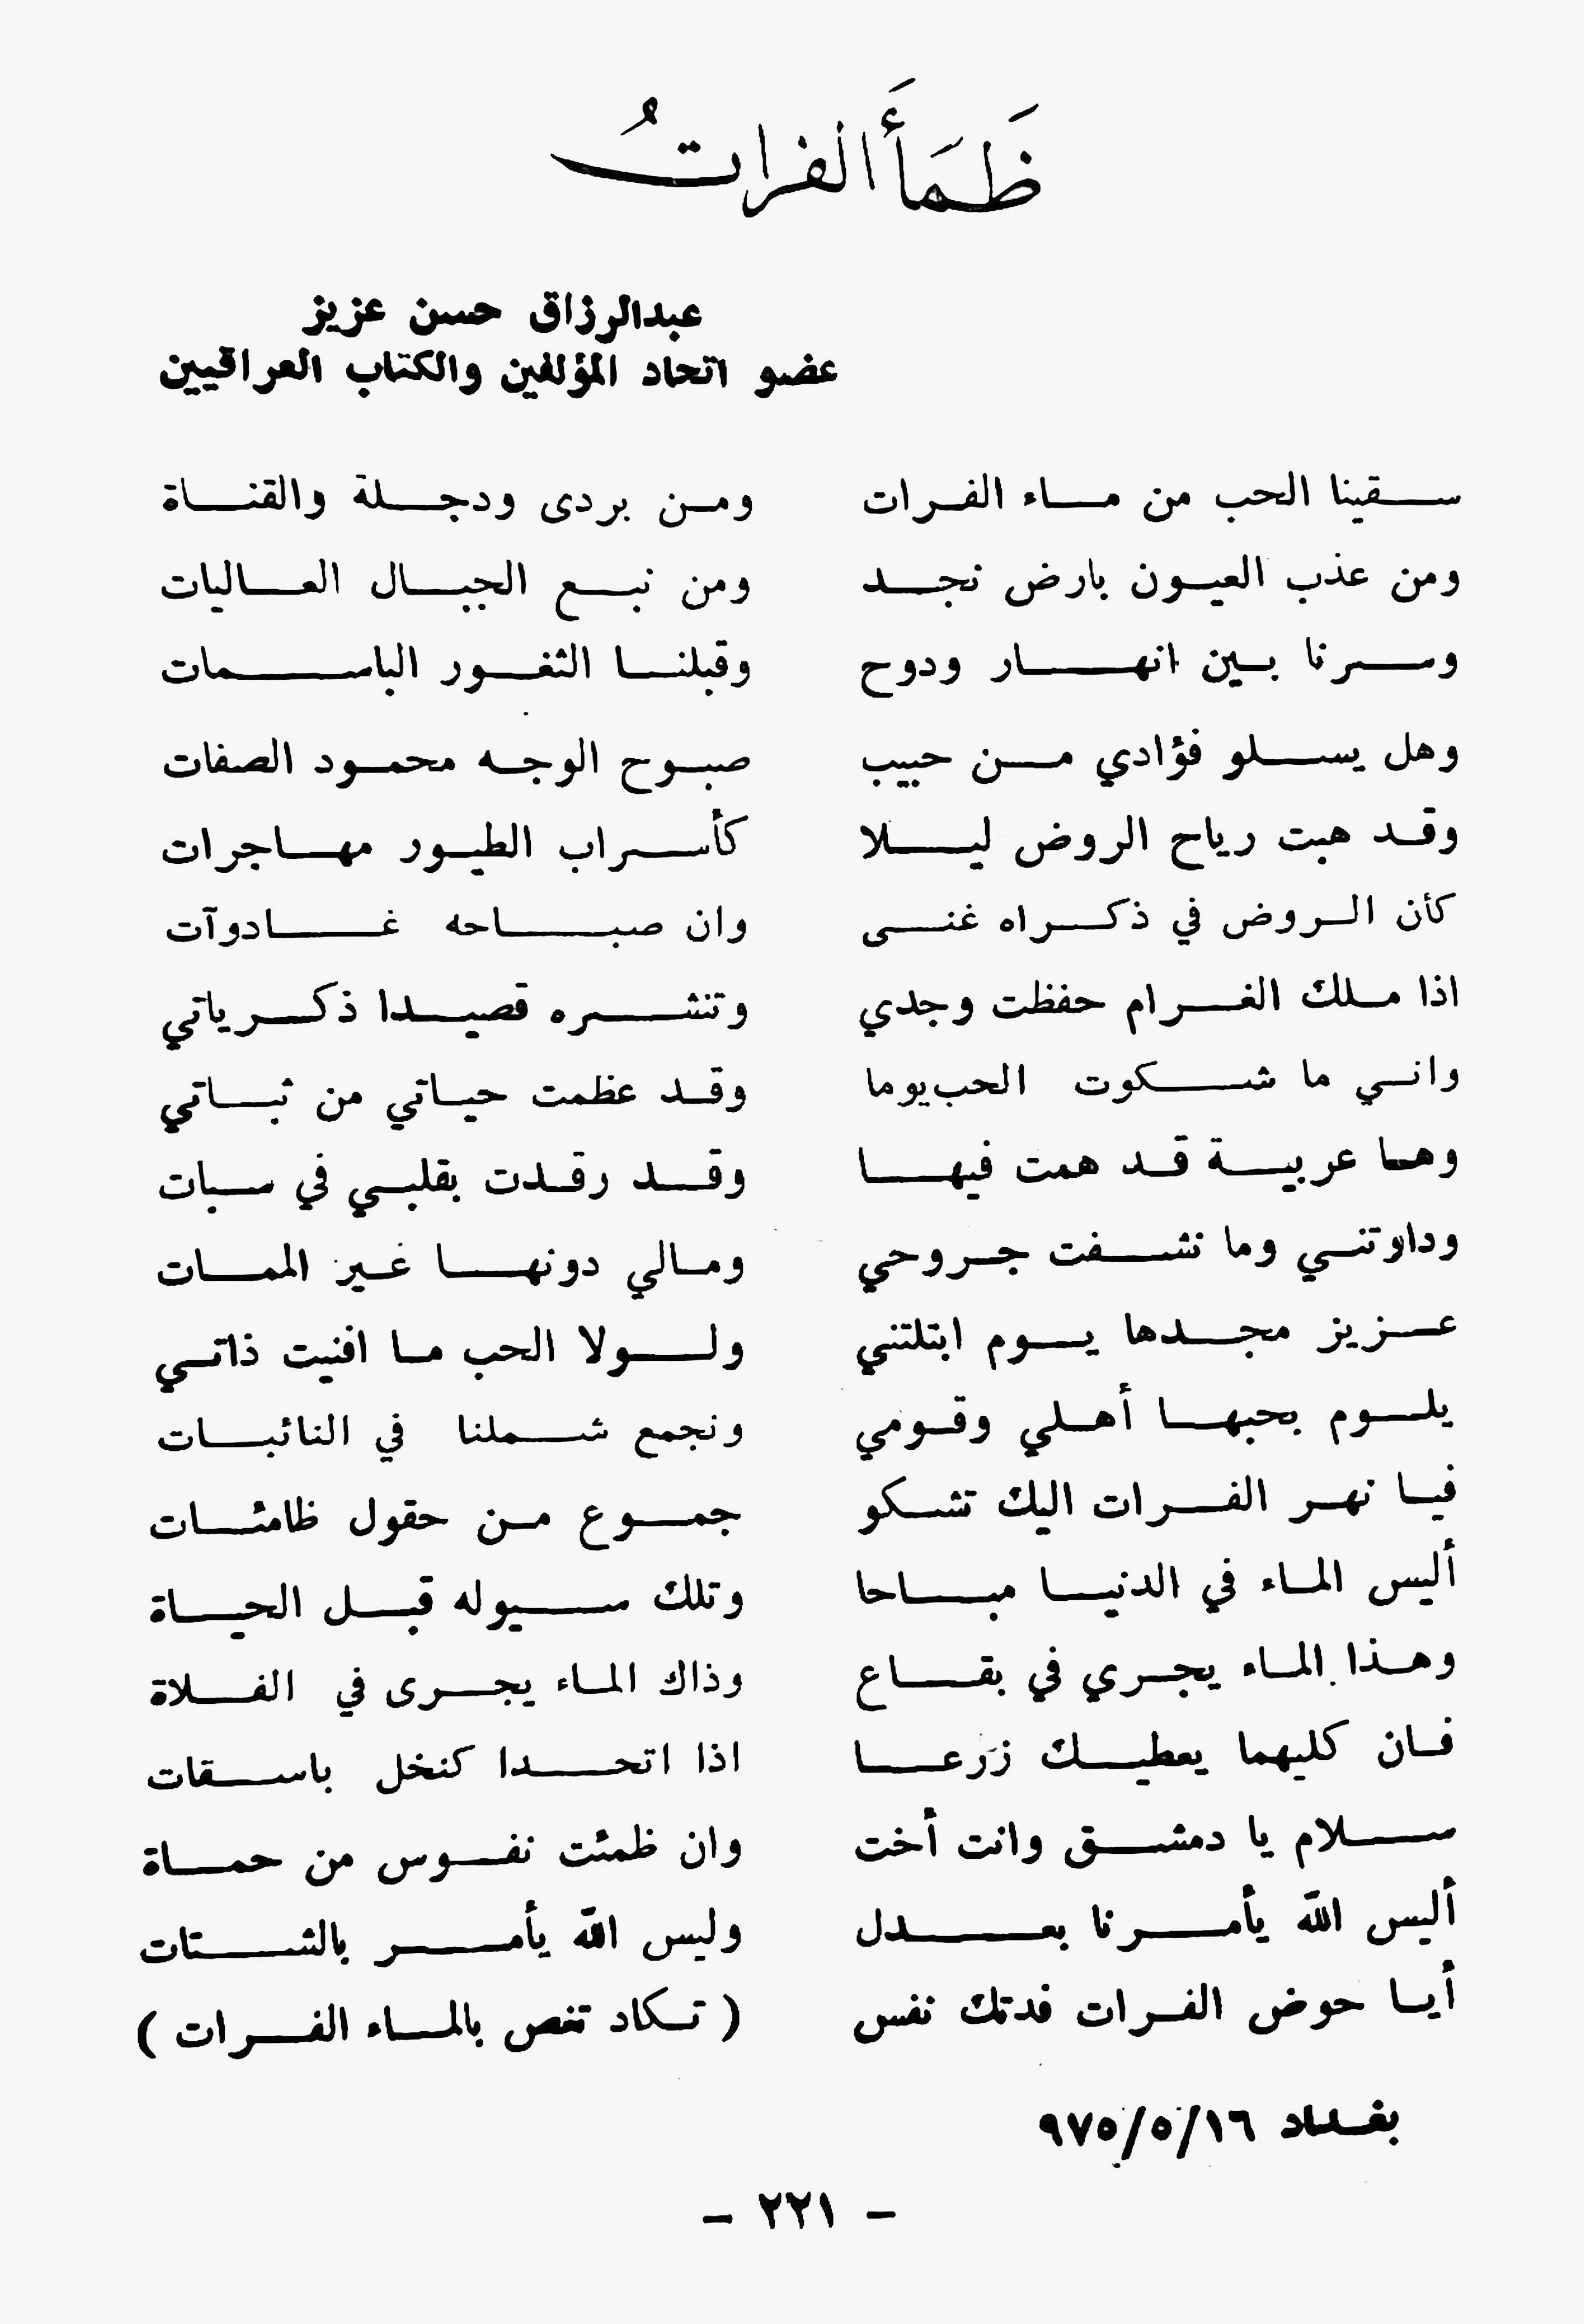 ظَمَأَ الفراتُ
عبدالرزاق حسن عزيز
عضو اتحاد المؤلفين والكتاب العراقيين
سقينا الحب من ماء الفرات ومن بردى ودجلة والقناة
ومن عذب العيون بارض نجد ومن نبع الجبال العاليات
وسرنا بين انهار ودوح وقبلنا الثغور الباسمات
وهل يسلو فؤادي من حبيب صبوح الوجه محمود الصفات
وقد هبت رياح الروض ليلا كأسراب الطيور مهاجرات
كأن الروض في ذكراه غنى وان صباحه غادوآت
اذا ملك الغرام حفظت وجدي وتنشره قصيدا ذكرياتي
واني ما شكوت الحب يوما وقد عظمت حياتي من ثباتي
وها عربية قد همت فيها وقد رقدت بقلبي في سبات
وداوتني وما نشفت جروحي ومالي دونها غير الممات
عزيز مجدها يوم ابتلتني ولولا الحب ما افنيت ذاتي
يلوم بحبها أهلي وقومي ونجمع شملنا في النائبات
فيا نهر الفرات اليك تشكو جموع من حقول ظامئات
أليس الماء في الدنيا مباحا وتلك سيوله قبل الحياة
وهذا الماء يجري في بقاع وذاك الماء يجرى في الفلاة
فان كليهما يعطيك زرعا اذا اتحدا كنخل باسقات
سلام يا دمشق وانت أخت وان ظمئت نفوس من حماة
أليس الله يأمرنا بعدل وليس الله يأمر بالشتات
أيا حوض الفرات فدتك نفس ( تكاد تغص بالماء الفرات )
بغداد ١٦/٥/٩٧٥
- ٢٢١ -